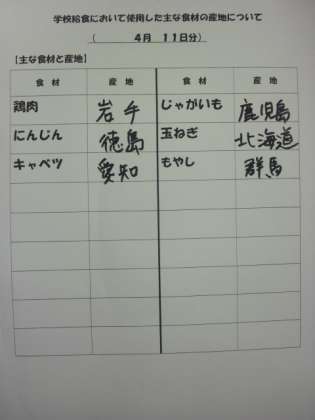 学校給食において使用した主な食材の産地について
( 4月 11日分)
【主な食材と産地】
食材 産地 食材 産地
鶏肉 岩手 じゃがいも 鹿児島
にんじん 徳島 玉ねぎ 北海道
キャベツ 愛知 もやし 群馬